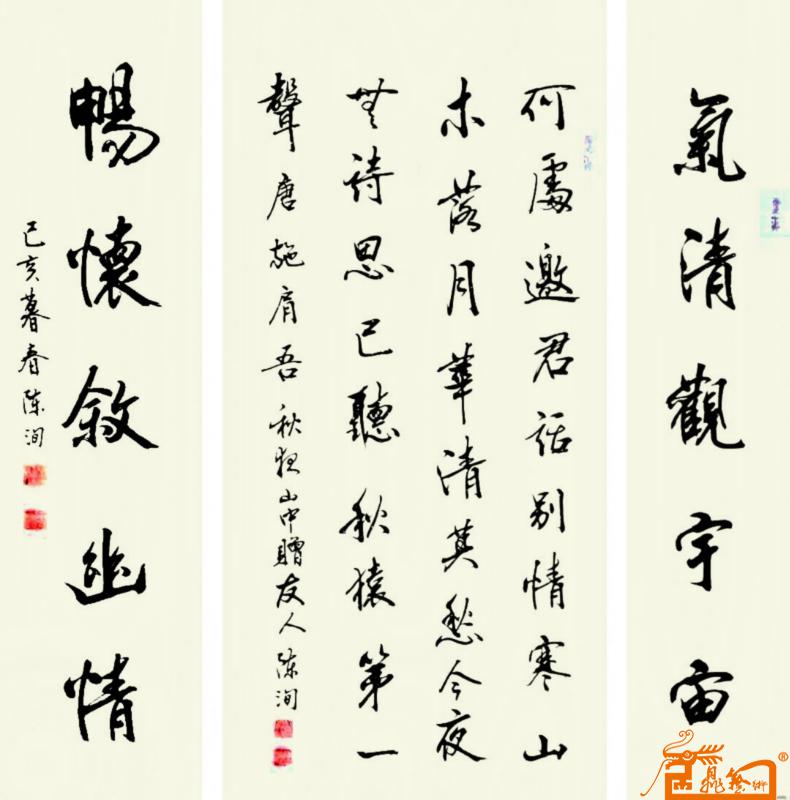 氣清觀宇宙
何處邀君話別情寒山
木落月華清莫愁今夜
無詩思已聽秋猿第一
聲唐施肩吾秋夜山中贈友人陳洵
暢懷敘幽情
己亥暮春陳洵